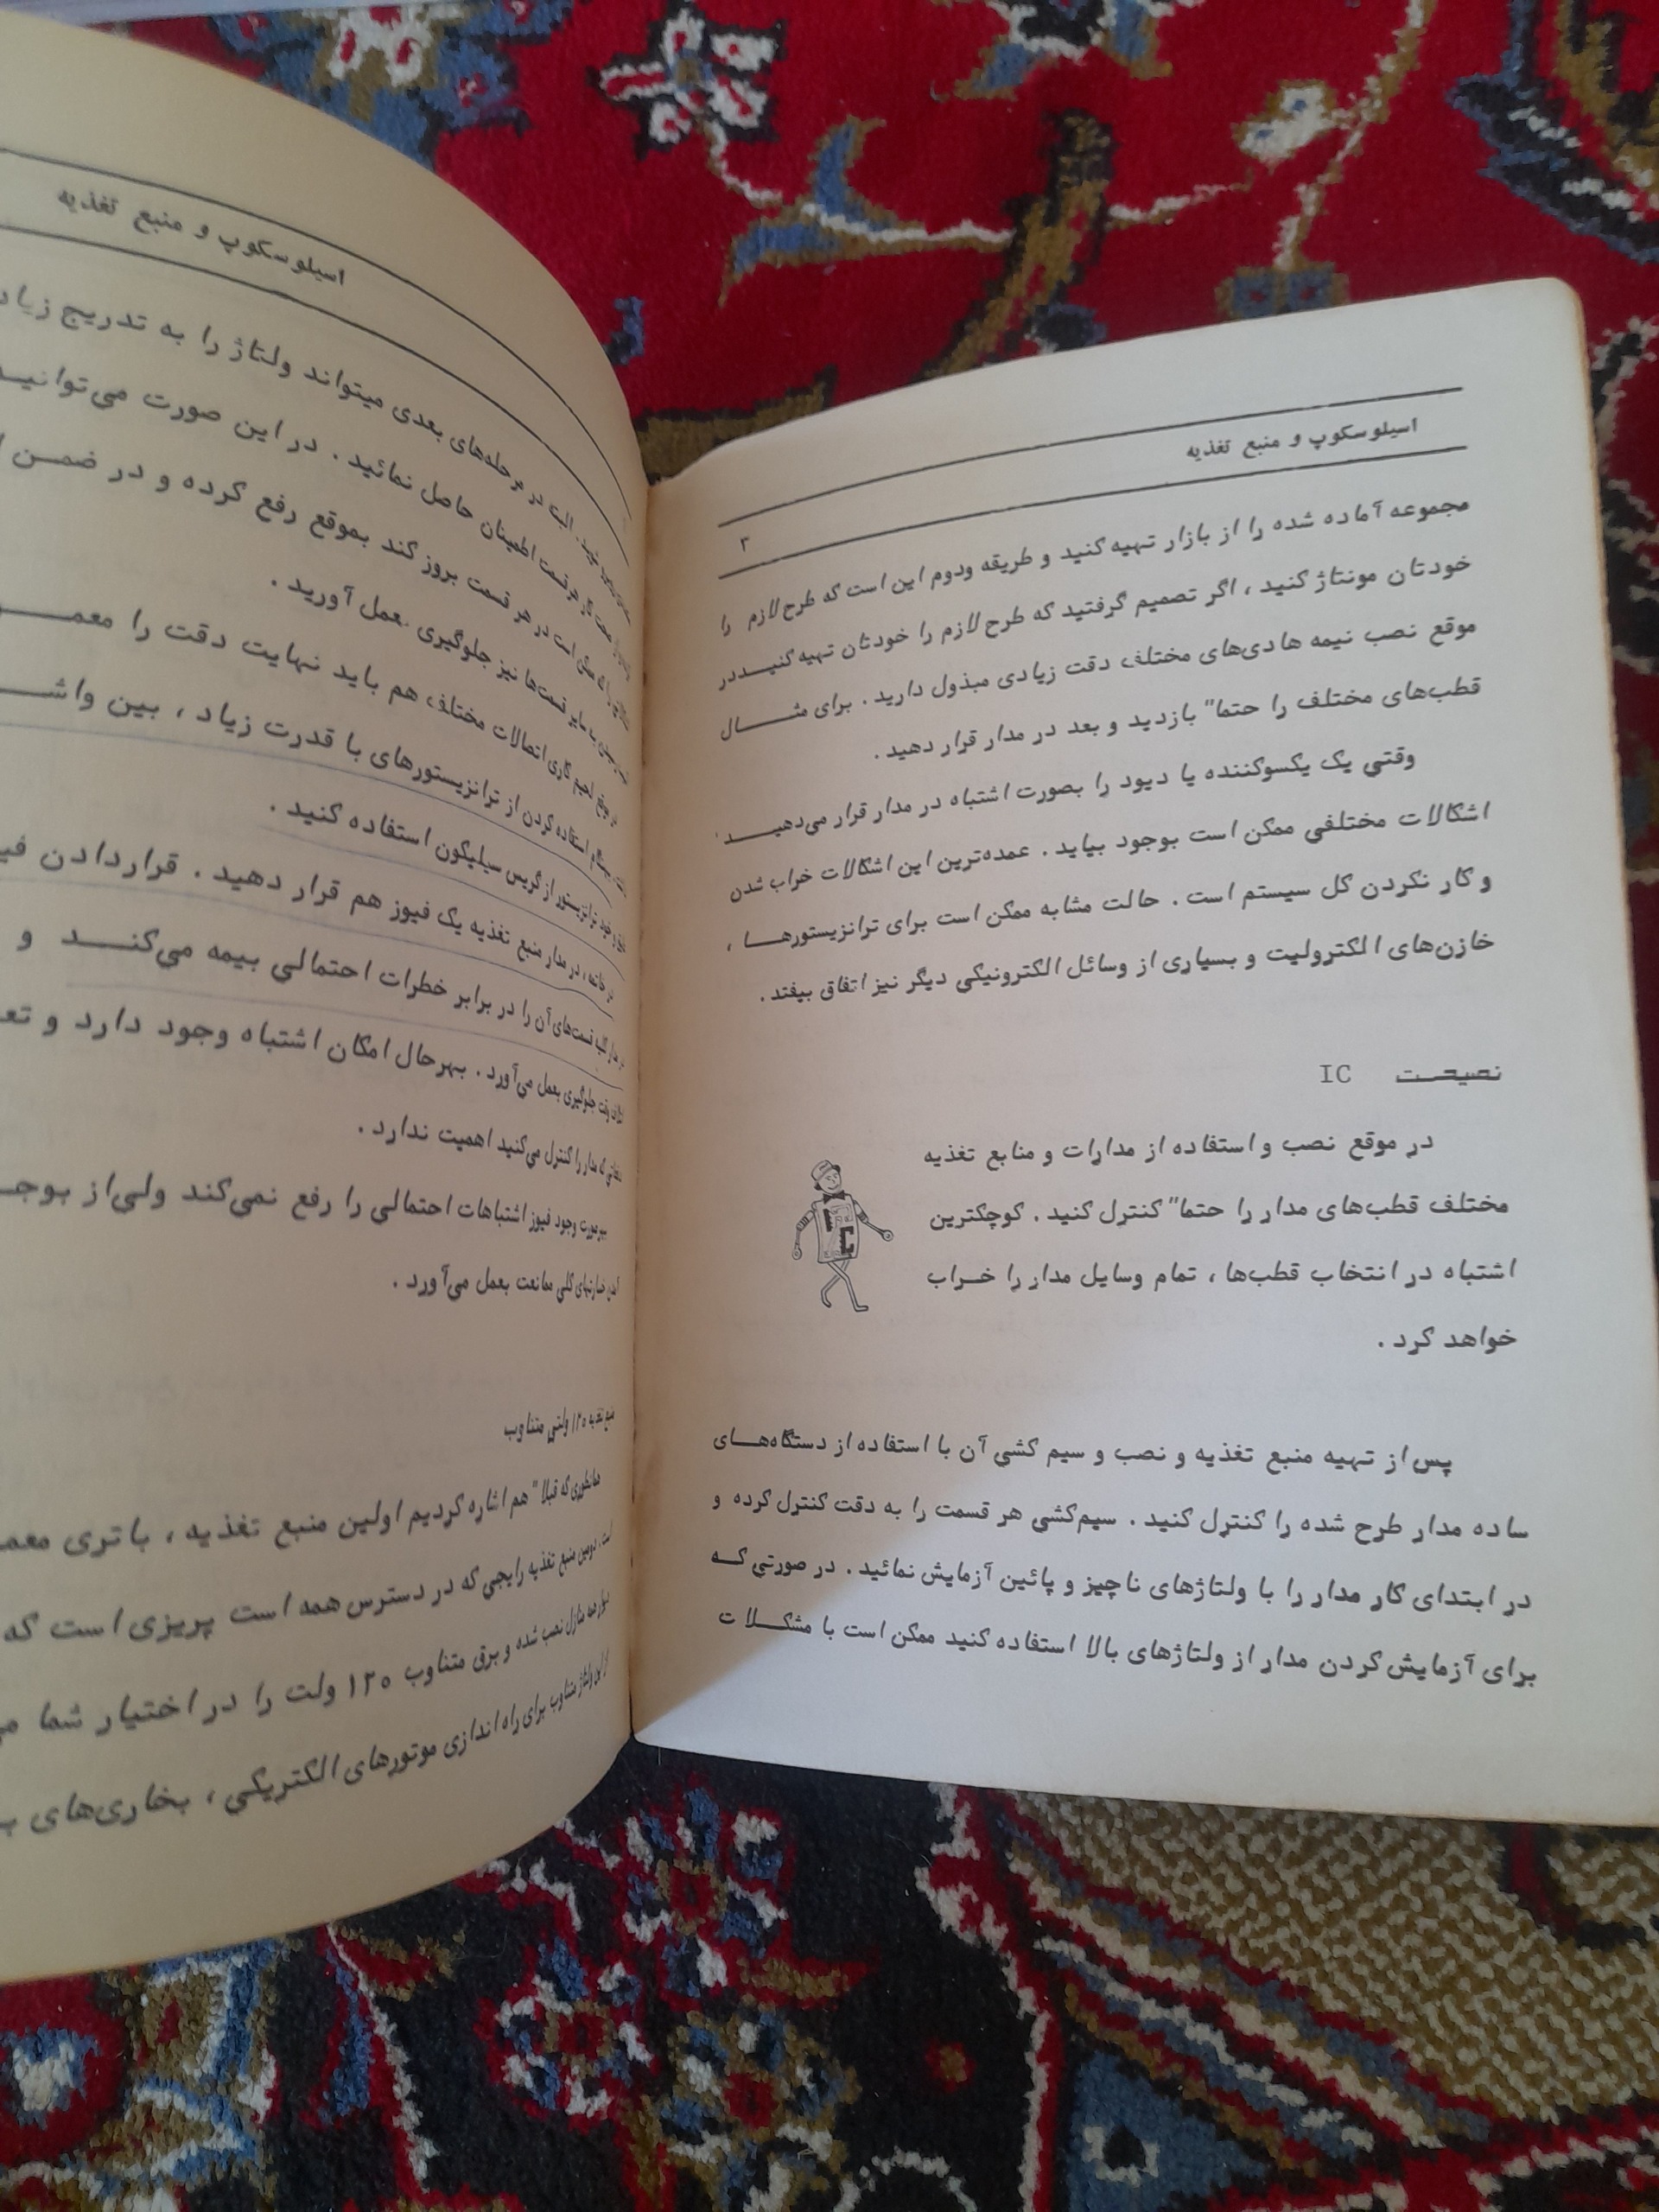 اسیلوسکوپ و منبع تغذیه
۳
مجموعه آماده شده را از بازار تهیه کنید و طریقه ودوم این است که طرح لازم را
خودتان مونتاژ کنید ، اگر تصمیم گرفتید که طرح لازم را خودتان تهیه کنیــد در
موقع نصب نیمه هادی‌های مختلف دقت زیادی مبذول دارید . برای مثـــال
قطب‌های مختلف را حتما" بازدید و بعد در مدار قرار دهید .
وقتی یک یکسوکننده یا دیود را بصورت اشتباه در مدار قرار می‌دهیـــد
اشکالات مختلفی ممکن است بوجود بیاید . عمده‌ترین این اشکالات خراب شدن
و کار نکردن کل سیستم است . حالت مشابه ممکن است برای ترانزیستورهــا ،
خازن‌های الکترولیت و بسیاری از وسائل الکترونیکی دیگر نیز اتفاق بیفتد .
نصیحــت IC
در موقع نصب و استفاده از مدارات و منابع تغذیه
مختلف قطب‌های مدار را حتما" کنترل کنید . کوچکترین
اشتباه در انتخاب قطب‌ها ، تمام وسایل مدار را خــراب
خواهد کرد .
پس از تهیه منبع تغذیه و نصب و سیم کشی آن با استفاده از دستگاه‌هــای
ساده مدار طرح شده را کنترل کنید . سیم‌کشی هر قسمت را به دقت کنترل کرده و
در ابتدای کار مدار را با ولتاژهای ناچیز و پائین آزمایش نمائید . در صورتی کــه
برای آزمایش کردن مدار از ولتاژهای بالا استفاده کنید ممکن است با مشکــلات
اسیلوسکوپ و منبع تغذیه
البته در مرحله‌های بعدی میتواند ولتاژ را به تدریج زیاد
قسمت اطمینان حاصل نمائید . در این صورت می‌توانیـد
است در هر قسمت بروز کند بموقع رفع کرده و در ضمــن
به سایر قسمت‌ها نیز جلوگیری بعمل آورید .
لحیم کاری اتصالات مختلف هم باید نهایت دقت را معمـــو
استفاده کردن از ترانزیستورهای با قدرت زیاد ، بین واشـــ
خود ترانزیستور از گریس سیلیکون استفاده کنید .
در خاتمه ، در مدار منبع تغذیه یک فیوز هم قرار دهید . قراردادن فیـ
قسمت‌های آن را در برابر خطرات احتمالی بیمه می‌کنـــد و
جلوگیری بعمل می‌آورد . بهرحال امکان اشتباه وجود دارد و تعـ
که مدار را کنترل می‌کنید اهمیت ندارد .
وجود فیوز اشتباهات احتمالی را رفع نمی‌کند ولی از بوجـ
کلی ممانعت بعمل می‌آورد .
منبع تغذیه ۱۲۰ ولتی متناوب
همانطوری که قبلا" هم اشاره کردیم اولین منبع تغذیه ، باتری معمـ
است . دومین منبع تغذیه رایجی که در دسترس همه است پریزی است که
منازل نصب شده و برق متناوب ۱۲۰ ولت را در اختیار شما
از این ولتاژ متناوب برای راه اندازی موتورهای الکتریکی ، بخاری‌های